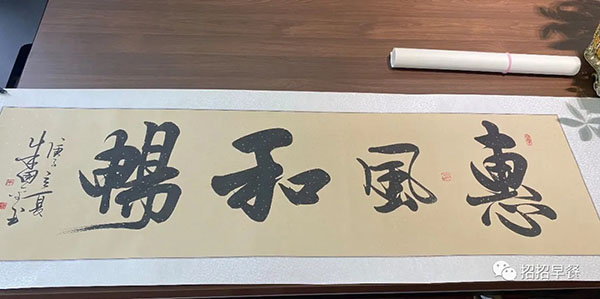 惠風和暢
庚子立夏
招招早餐